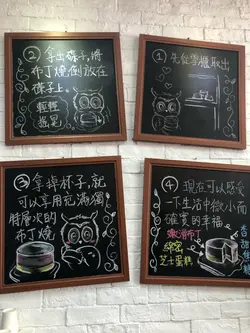 ② 拿出碟子,將
布丁燒倒放在
碟子上。
輕輕
搖晃
① 先從雪櫃取出
③ 拿掉杯子,就
可以享用充滿獨
特層次的
布丁燒
④ 現在可以感受
一下生活中微小而
確實的幸福
嫩滑布丁
綿密
芝士蛋糕
香甜焦糖